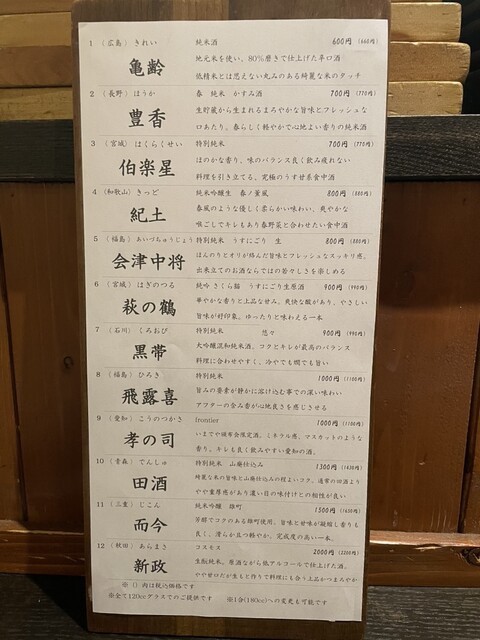 1 (広島) きれい 純米酒 600円 (660円)
亀齢
地元米を使い、80%磨きで仕上げた辛口酒
低精米とは思えない丸みのある綺麗な米のタッチ
2 (長野) ほうか 春 純米 かすみ酒 700円 (770円)
豊香
生貯蔵から生まれるまろやかな旨味とフレッシュな
口あたり。春らしく軽やかで心地よい香りの純米酒
3 (宮城) はくらくせい 特別純米 700円 (770円)
伯楽星
ほのかな香り、味のバランス良く飲み疲れない
料理を引き立てる、究極のうす甘系食中酒
4 (和歌山) きっど 純米吟醸生 春ノ薫風 800円 (880円)
紀土
春風のような優しく柔らかい味わい、爽やかな
喉ごしでキレもあり春野菜と合わせたい食中酒
5 (福島) あいづちゅうじょう 特別純米 うすにごり 生 800円 (880円)
会津中将
ほんのりとオリが絡んだ旨味とフレッシュなスッキリ感。
出来立てのお酒ならではの若々しさを楽しめる
6 (宮城) はぎのつる 純吟 さくら猫 うすにごり生原酒 900円 (990円)
萩の鶴
華やかな香りと上品な甘み。爽快な酸があり、やさしい
旨味が好印象。ゆったりと味わえる一本
7 (石川) くろおび 特別純米 悠々 900円 (990円)
黒帯
大吟醸混和純米酒。コクとキレが最高のバランス
料理に合わせやすく、冷やでも燗でも旨い
8 (福島) ひろき 特別純米 1000円 (1100円)
飛露喜
旨みの要素が静かに溶け込む事での深い味わい
アフターの含み香が心地良さを感じさせる
9 (愛知) こうのつかさ frontier 1000円 (1100円)
孝の司
いまでや頒布会限定酒。ミネラル感、マスカットのような
香り。キレも良く飲みやすい愛知の酒。
10 (青森) でんしゅ 特別純米 山廃仕込み 1300円 (1430円)
田酒
綺麗な米の旨味と山廃仕込みの程よいコク。通常の田酒より
やや重厚感があり濃い目の味付けとの相性が良い
11 (三重) じこん 純米吟醸 雄町 1500円 (1650円)
而今
芳醇でコクのある雄町使用。旨味と甘味が凝縮し香りも
良く、滑らか且つ軽やか、完成度の高い一本。
12 (秋田) あらまさ コスモス 2000円 (2200円)
新政
生酛純米。原酒ながら低アルコールで仕上げた酒。
やや甘口だが生もと作りで料理にも合う上品かつまろやか
※()内は税込価格です
※全て120ccグラスでのご提供です ※1合(180cc)への変更も可能です